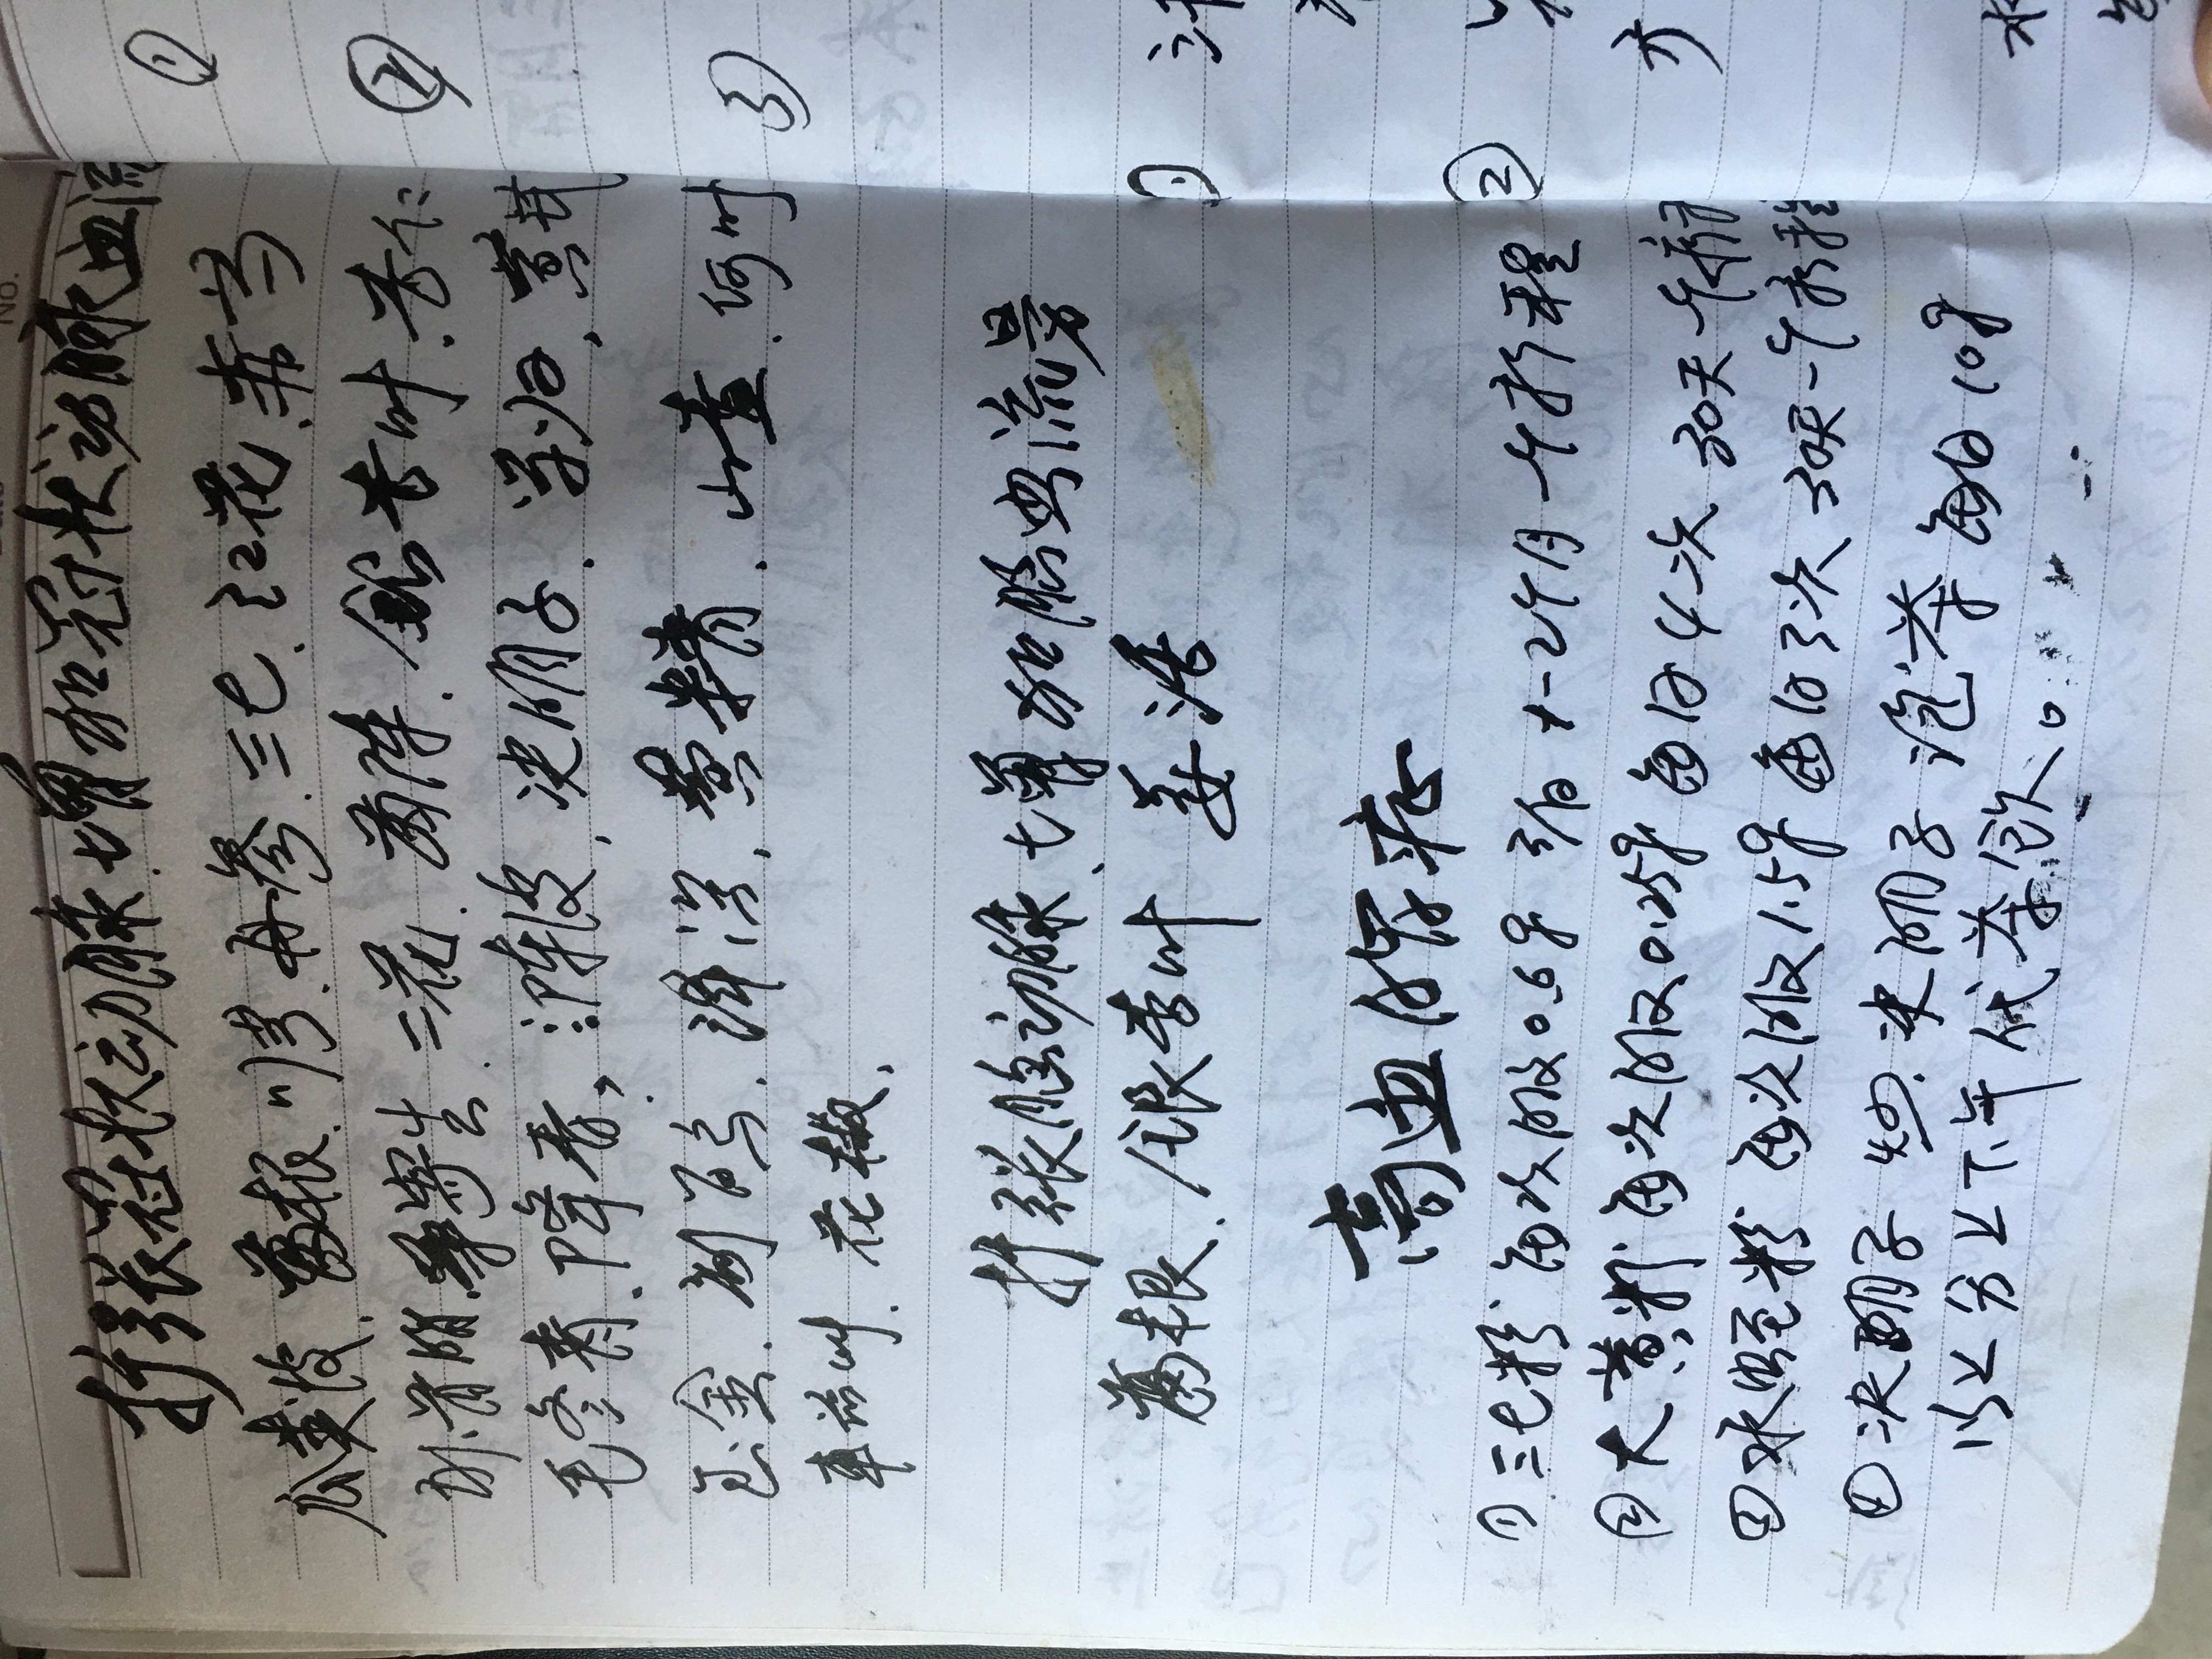 扩张冠状动脉、增加冠状动脉血流
瓜蒌皮、葛根、川芎、丹参、三七、红花、赤芍
寄生、二花、茵陈、银杏叶、杏仁
毛冬青、降香、陈皮、决明子、当归、黄芪
玉金、制首乌、泽泻、黄精、山查、何叶
花椒、
扩张脑动脉、增加脑血流量
葛根、银杏叶 姜活
高血脂症
①三七粉 每次服0.6g 3/日 1-2个月一个疗程
②大黄粉 每次服0.25g 每日4次 30天一个疗程
③水蛭粉 每次服1.5g 每日3次 30天一个疗程
④决明子 炒决明子 泡茶 每日10g
以上分上下午代茶饮。
①
②
③
①
②